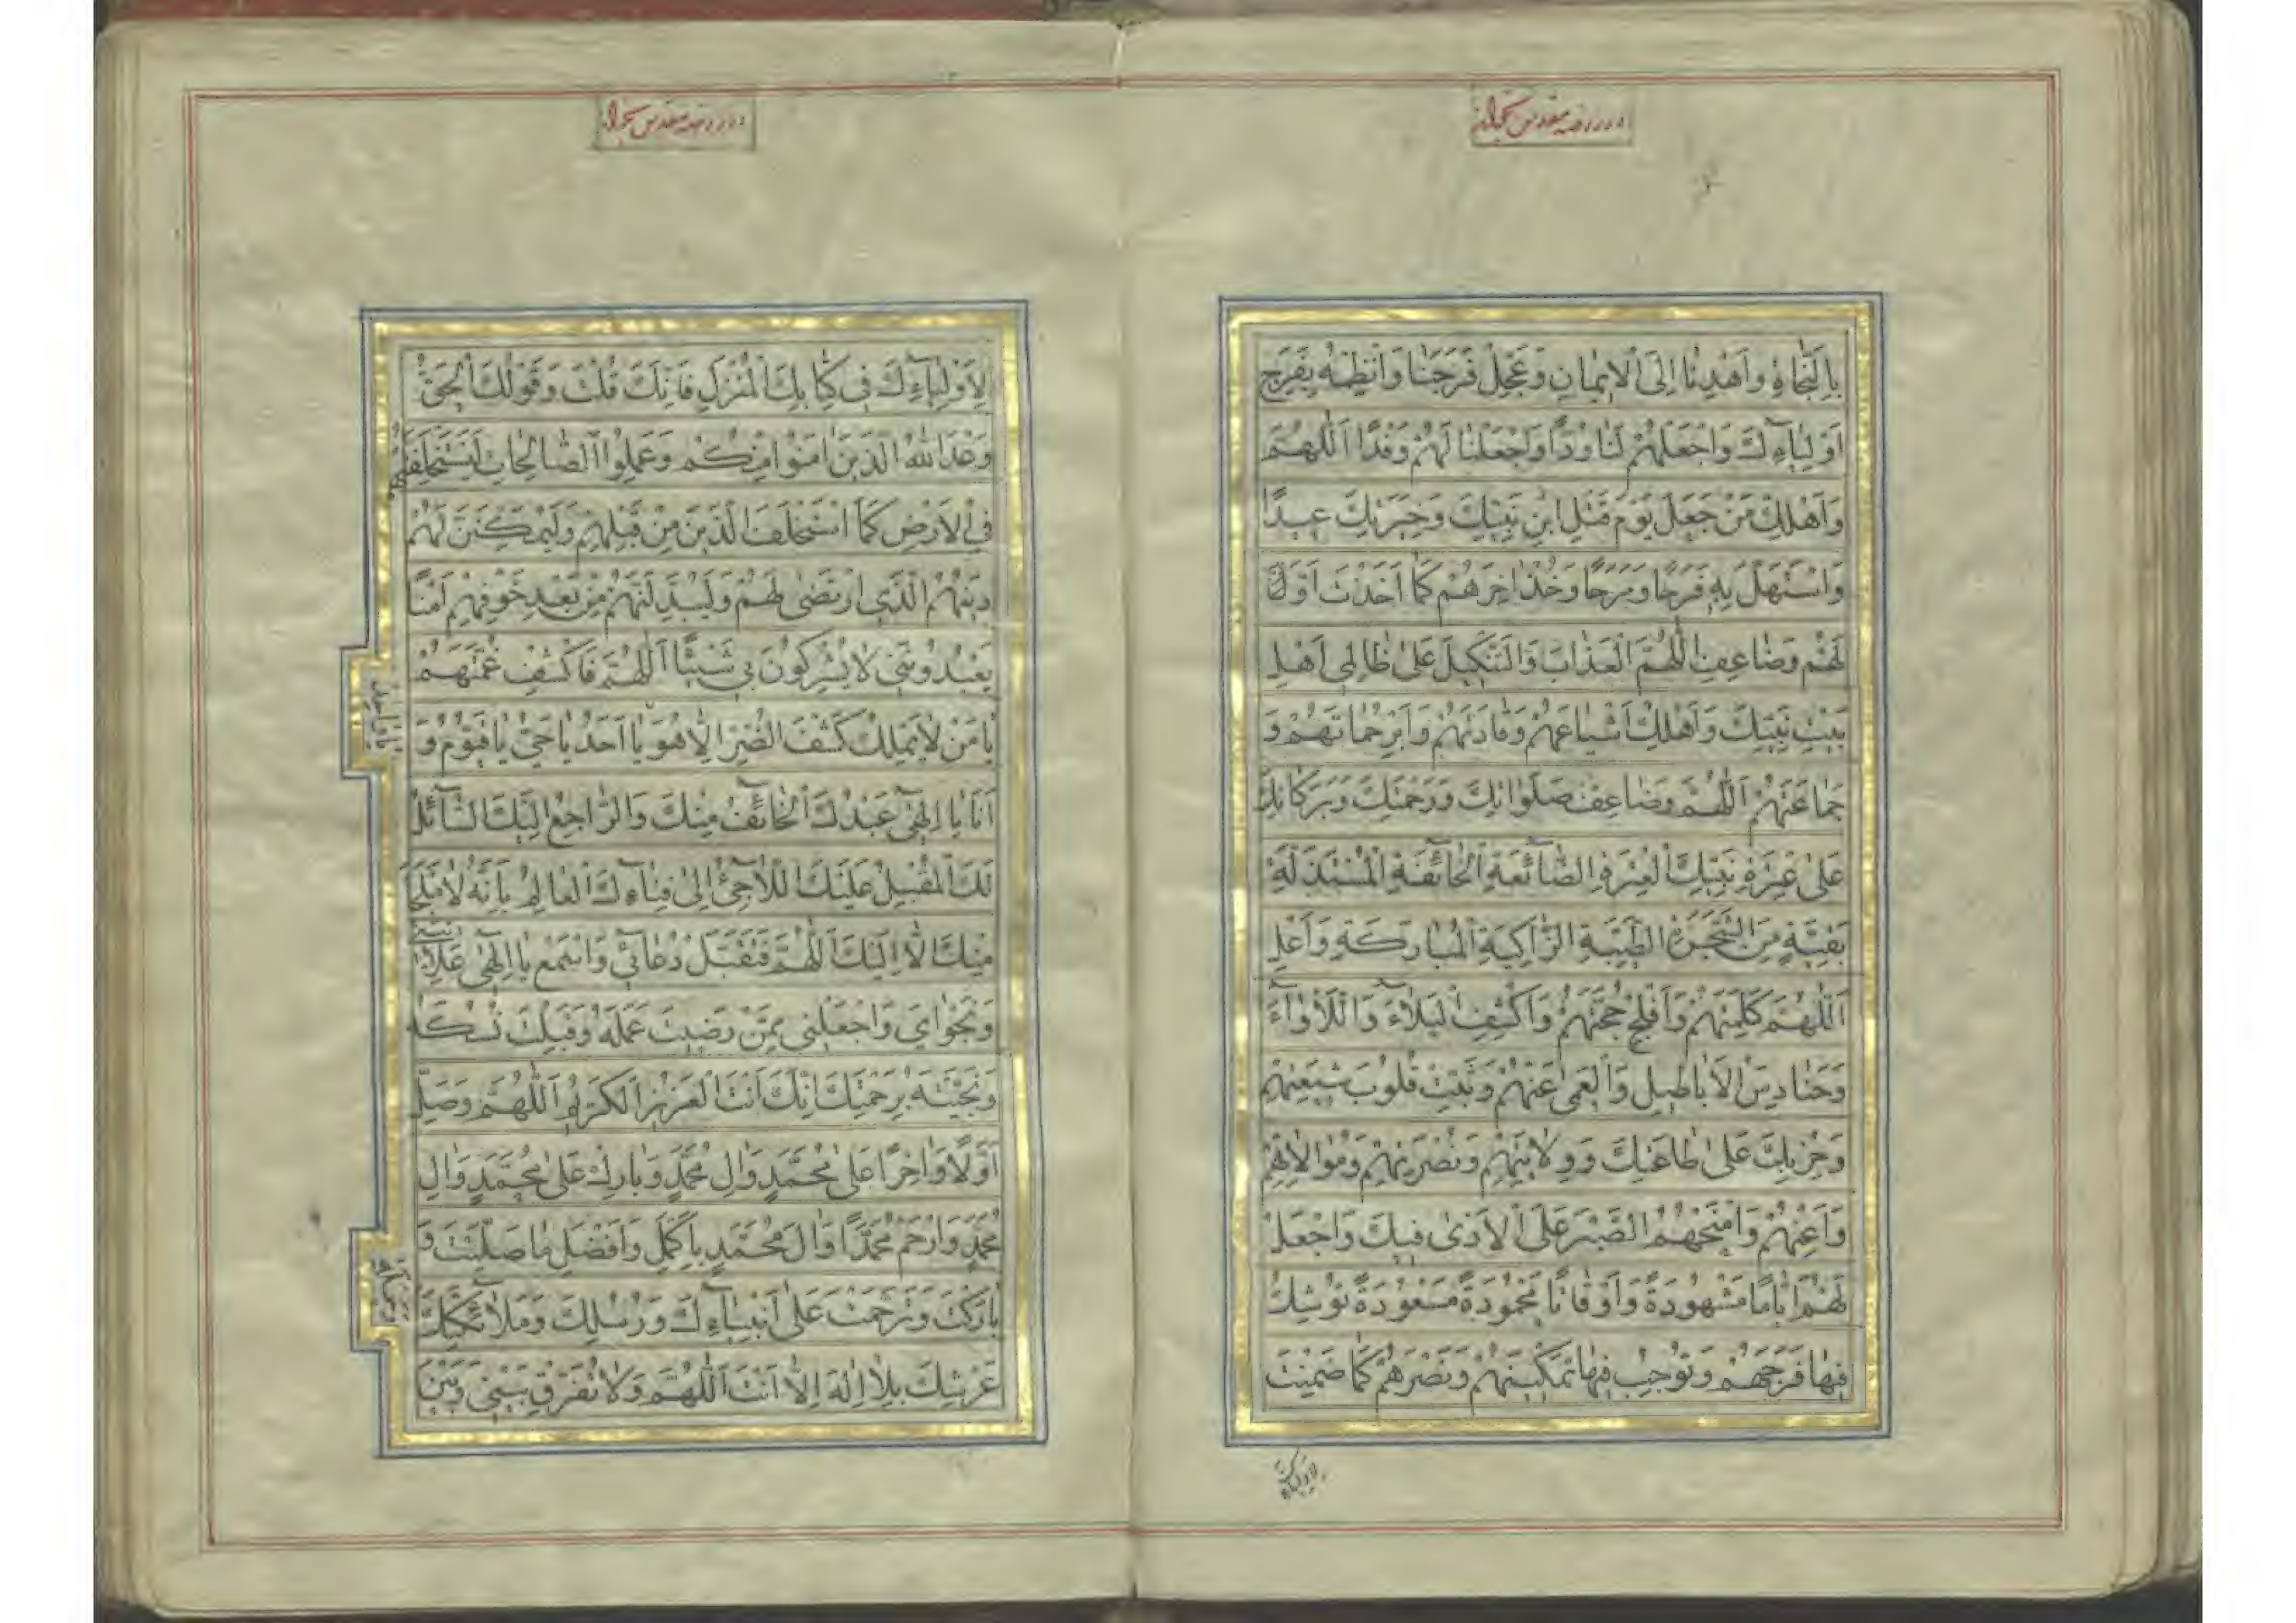 بِالنَّجَاةِ وَاَهْدِنَا اِلَى الْاِیمَانِ وَعَجِّلْ فَرَجَنَا وَانْظِمْهُ بِفَرَجِ
اَوْلِیَآءِكَ وَاجْعَلْهُمْ لَنَا وُدًّا وَاجْعَلْنَا لَهُمْ وَفْدًا اَللّٰهُمَّ
وَاَهْلِكْ مَنْ جَعَلَ یَوْمَ قَتْلِ ابْنِ نَبِیِّكَ وَخِیَرَتِكَ عِیدًا
وَاسْتَهَلَّ بِهِ فَرَحًا وَمَرَحًا وَخُذْ اٰخِرَهُمْ كَمَا اَخَذْتَ اَوَّلَ
لَهُمْ وَضَاعِفِ اللّٰهُمَّ الْعَذَابَ وَالتَّنْكِیلَ عَلٰی ظَالِمِی اَهْلِ
بَیْتِ نَبِیِّكَ وَاَهْلِكْ اَشْیَاعَهُمْ وَقَادَتَهُمْ وَاَبِرْ حُمَاتَهُمْ وَ
جَمَاعَتَهُمْ اَللّٰهُمَّ وَضَاعِفْ صَلَوَاتِكَ وَرَحْمَتَكَ وَبَرَكَاتِكَ
عَلٰی عِتْرَةِ نَبِیِّكَ الْعِتْرَةِ الضَّآئِعَةِ الْخَآئِفَةِ الْمُسْتَذَلَّةِ
بَقِیَّةٍ مِنَ الشَّجَرَةِ الطَّیِّبَةِ الزَّاكِیَةِ الْمُبَارَكَةِ وَاَعْلِ
اَللّٰهُمَّ كَلِمَتَهُمْ وَاَفْلِجْ حُجَّتَهُمْ وَاكْشِفِ الْبَلَآءَ وَاللَّاْوَآءَ
وَحَنَادِسَ الْاَبَاطِیلِ وَالْعَمٰی عَنْهُمْ وَثَبِّتْ قُلُوبَ شِیعَتِهِمْ
وَحِزْبِكَ عَلٰی طَاعَتِكَ وَوِلَایَتِهِمْ وَنُصْرَتِهِمْ وَمُوَالَاتِهِمْ
وَاَعِنْهُمْ وَامْنَحْهُمُ الصَّبْرَ عَلَی الْاَذٰی فِیكَ وَاجْعَلْ
لَهُمْ اَیَّامًا مَشْهُودَةً وَاَوْقَاتًا مَحْمُودَةً مَسْعُودَةً تُوشِكُ
فِیهَا فَرَجَهُمْ وَتُوجِبُ فِیهَا تَمْكِینَهُمْ وَنَصْرَهُمْ كَمَا ضَمِنْتَ
لِاَوْلِیَآءِكَ فِی كِتَابِكَ الْمُنْزَلِ فَاِنَّكَ قُلْتَ وَقَوْلُكَ الْحَقُّ
وَعَدَ اللّٰهُ الَّذِینَ اٰمَنُوا مِنْكُمْ وَعَمِلُوا الصَّالِحَاتِ لَیَسْتَخْلِفَنَّهُمْ
فِی الْاَرْضِ كَمَا اسْتَخْلَفَ الَّذِینَ مِنْ قَبْلِهِمْ وَلَیُمَكِّنَنَّ لَهُمْ
دِینَهُمُ الَّذِی ارْتَضٰی لَهُمْ وَلَیُبَدِّلَنَّهُمْ مِنْ بَعْدِ خَوْفِهِمْ اَمْنًا
یَعْبُدُونَنِی لَا یُشْرِكُونَ بِی شَیْئًا اَللّٰهُمَّ فَاكْشِفْ غُمَّتَهُمْ
یَا مَنْ لَا یَمْلِكُ كَشْفَ الضُّرِّ اِلَّا هُوَ یَا اَحَدُ یَا حَیُّ یَا قَیُّومُ وَ
اَنَا یَا اِلٰهِی عَبْدُكَ الْخَآئِفُ مِنْكَ وَالرَّاجِعُ اِلَیْكَ السَّآئِلُ
لَكَ الْمُقْبِلُ عَلَیْكَ اللَّاجِئُ اِلٰی فِنَآءِكَ الْعَالِمُ بِاَنَّهُ لَا مَلْجَا
مِنْكَ اِلَّا اِلَیْكَ اَللّٰهُمَّ فَتَقَبَّلْ دُعَآئِی وَاسْمَعْ یَا اِلٰهِی عَلَانِیَتِی
وَنَجْوَایَ وَاجْعَلْنِی مِمَّنْ رَضِیتَ عَمَلَهُ وَقَبِلْتَ نُسُكَهُ
وَنَجَّیْتَهُ بِرَحْمَتِكَ اِنَّكَ اَنْتَ الْعَزِیزُ الْكَرِیمُ اَللّٰهُمَّ وَصَلِّ
اَوَّلًا وَاٰخِرًا عَلٰی مُحَمَّدٍ وَاٰلِ مُحَمَّدٍ وَبَارِكْ عَلٰی مُحَمَّدٍ وَاٰلِ
مُحَمَّدٍ وَارْحَمْ مُحَمَّدًا وَاٰلَ مُحَمَّدٍ بِاَكْمَلِ وَاَفْضَلِ مَا صَلَّیْتَ وَ
بَارَكْتَ وَتَرَحَّمْتَ عَلٰی اَنْبِیَآءِكَ وَرُسُلِكَ وَمَلَآئِكَتِكَ
عَرْشِكَ بِلَا اِلٰهَ اِلَّا اَنْتَ اَللّٰهُمَّ وَلَا تُفَرِّقْ بَیْنِی وَبَیْنَ